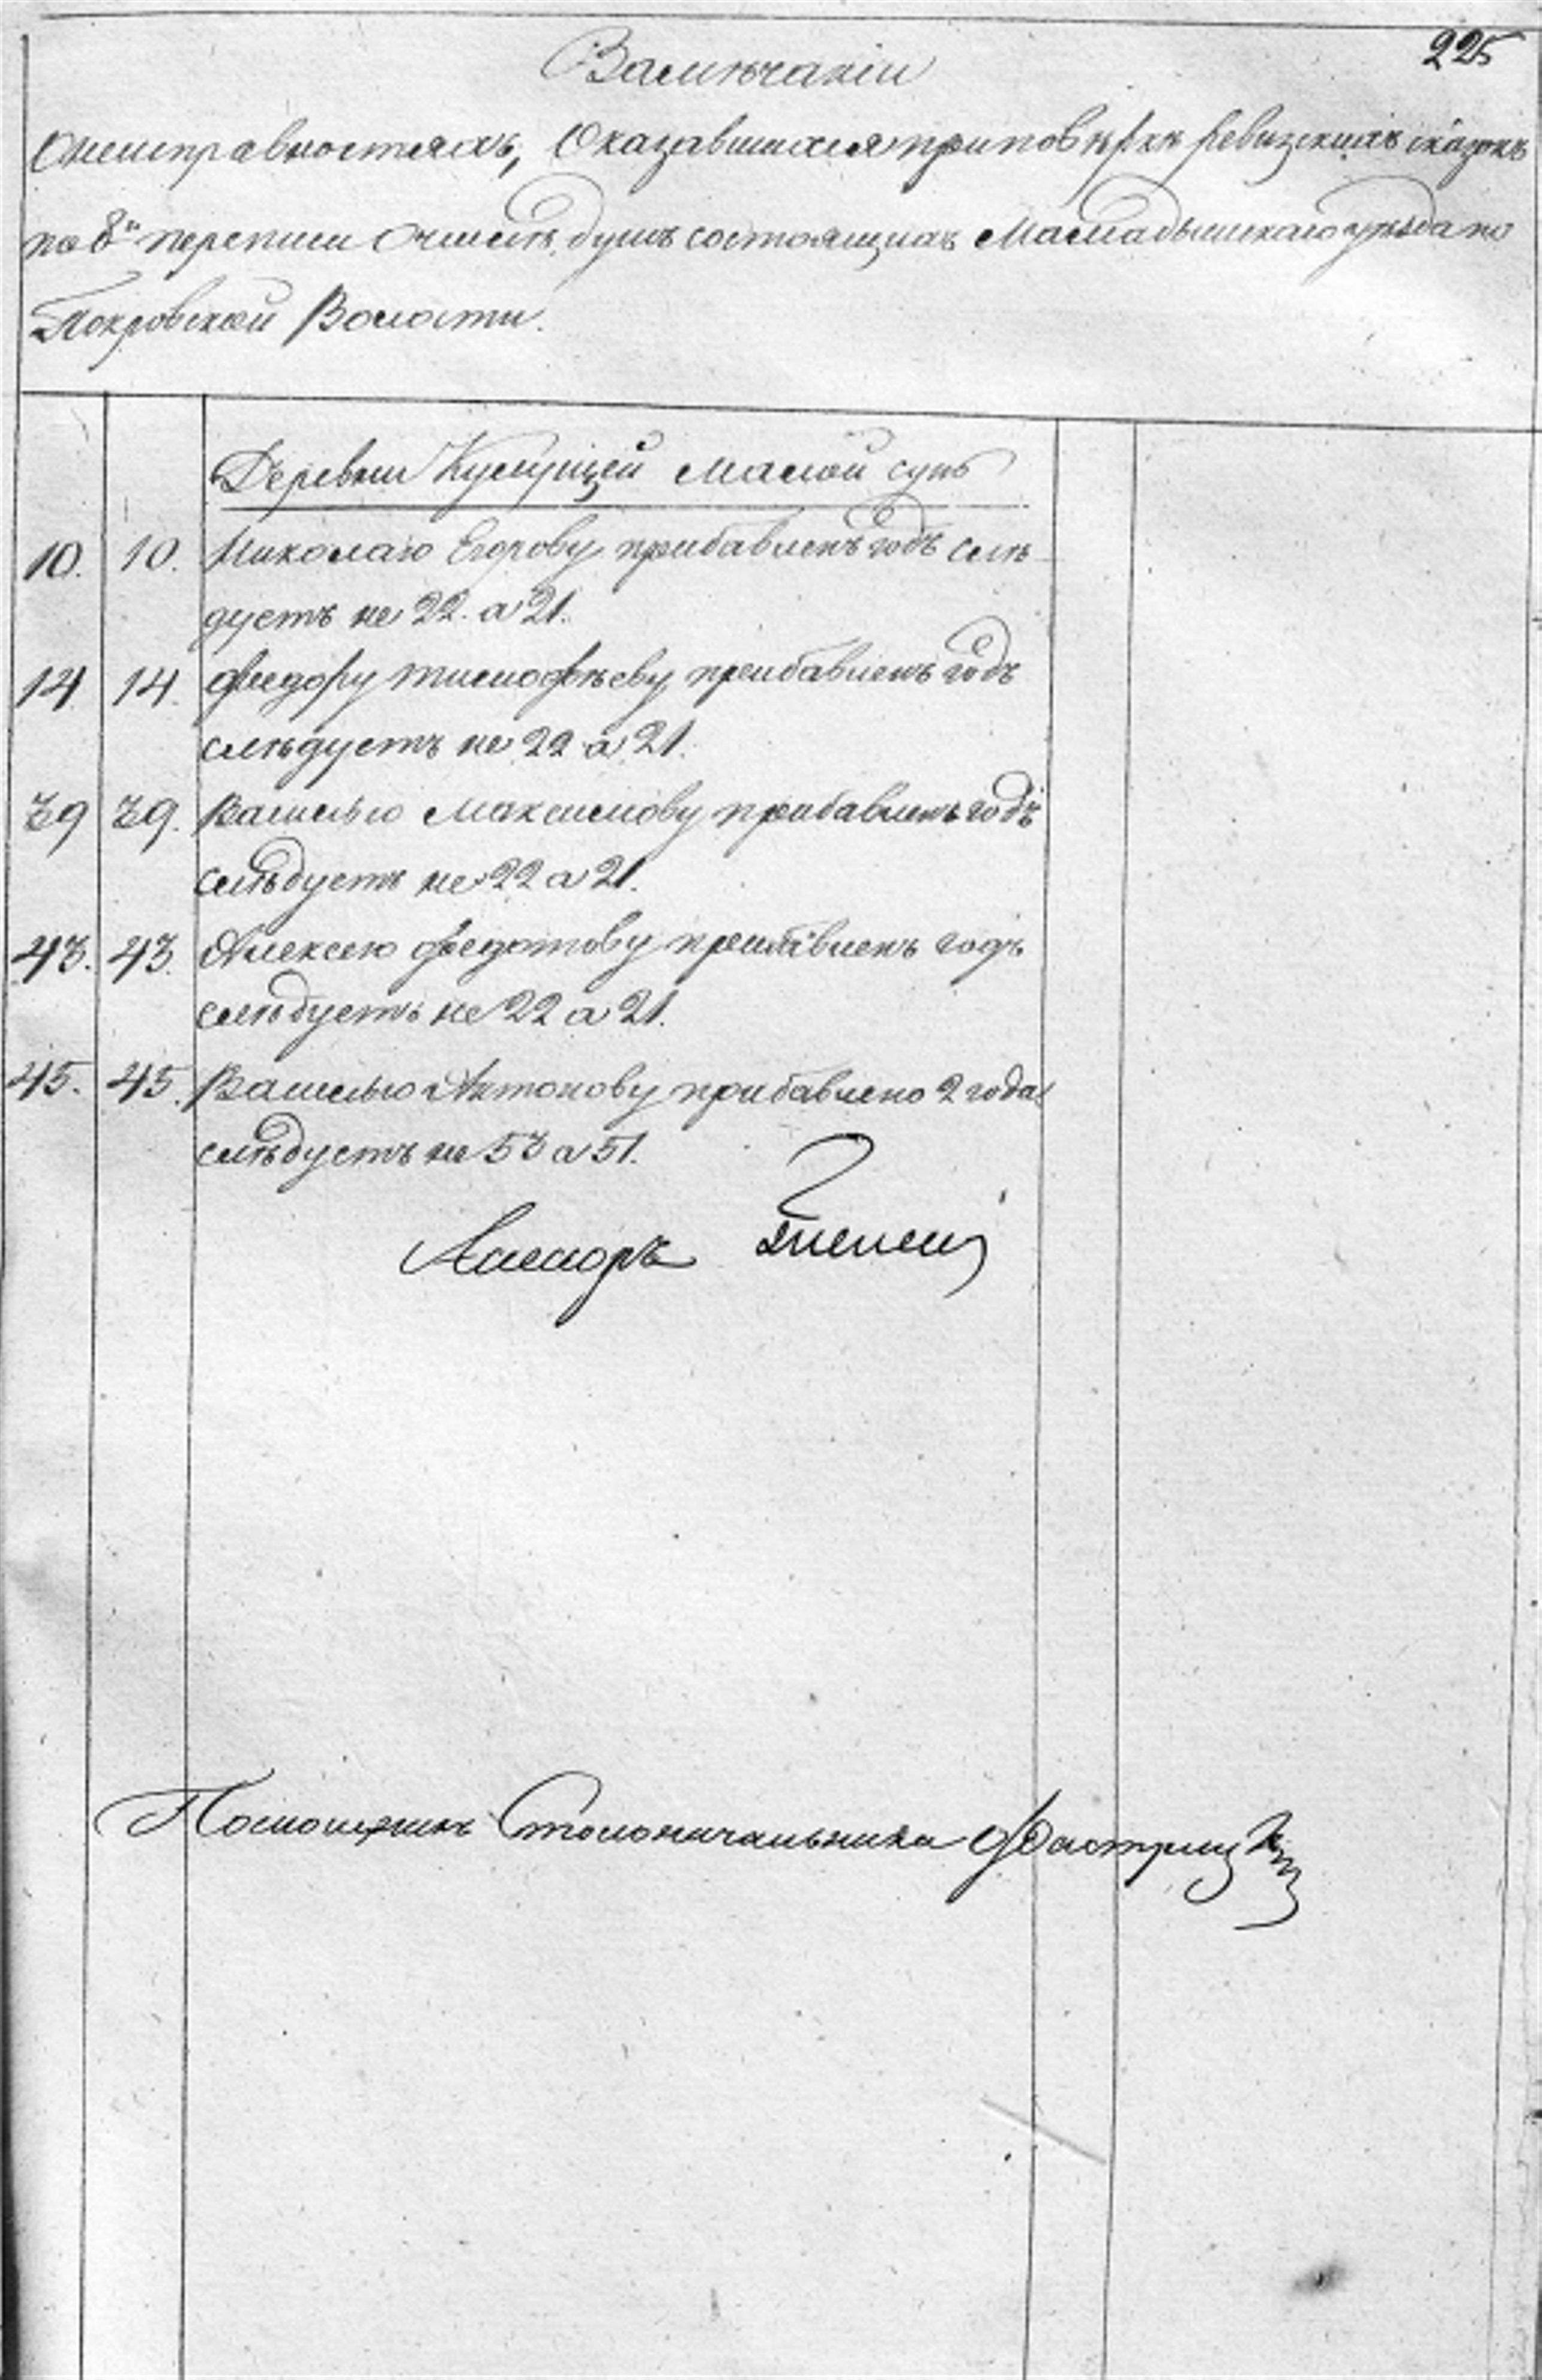 225
Замѣчанiи
О неисправностяхъ, Оказавшихся при повѣркѣ ревизскихъ сказокъ
по 8й переписи О числѣ душъ состоящихъ Мамадышскаго уѣзда по
Покровской Волости.
Деревни Кумущей Малой сунь
10. 10. Николаю Егорову прибавленъ годъ слѣ
дуетъ не 22. а 21.
14 14. Федору тимофѣеву прибавленъ годъ
слѣдуетъ не 22 а 21.
39 39. Василью Максимову прибавленъ годъ
слѣдуетъ не 22 а 21.
43. 43. Алексею Федотову прибавленъ годъ
слѣдуетъ не 22 а 21.
45. 45. Василью Антонову прибавлено 2 года
слѣдуетъ не 53 а 51.
Асесоръ
Помошникъ Столоначальника